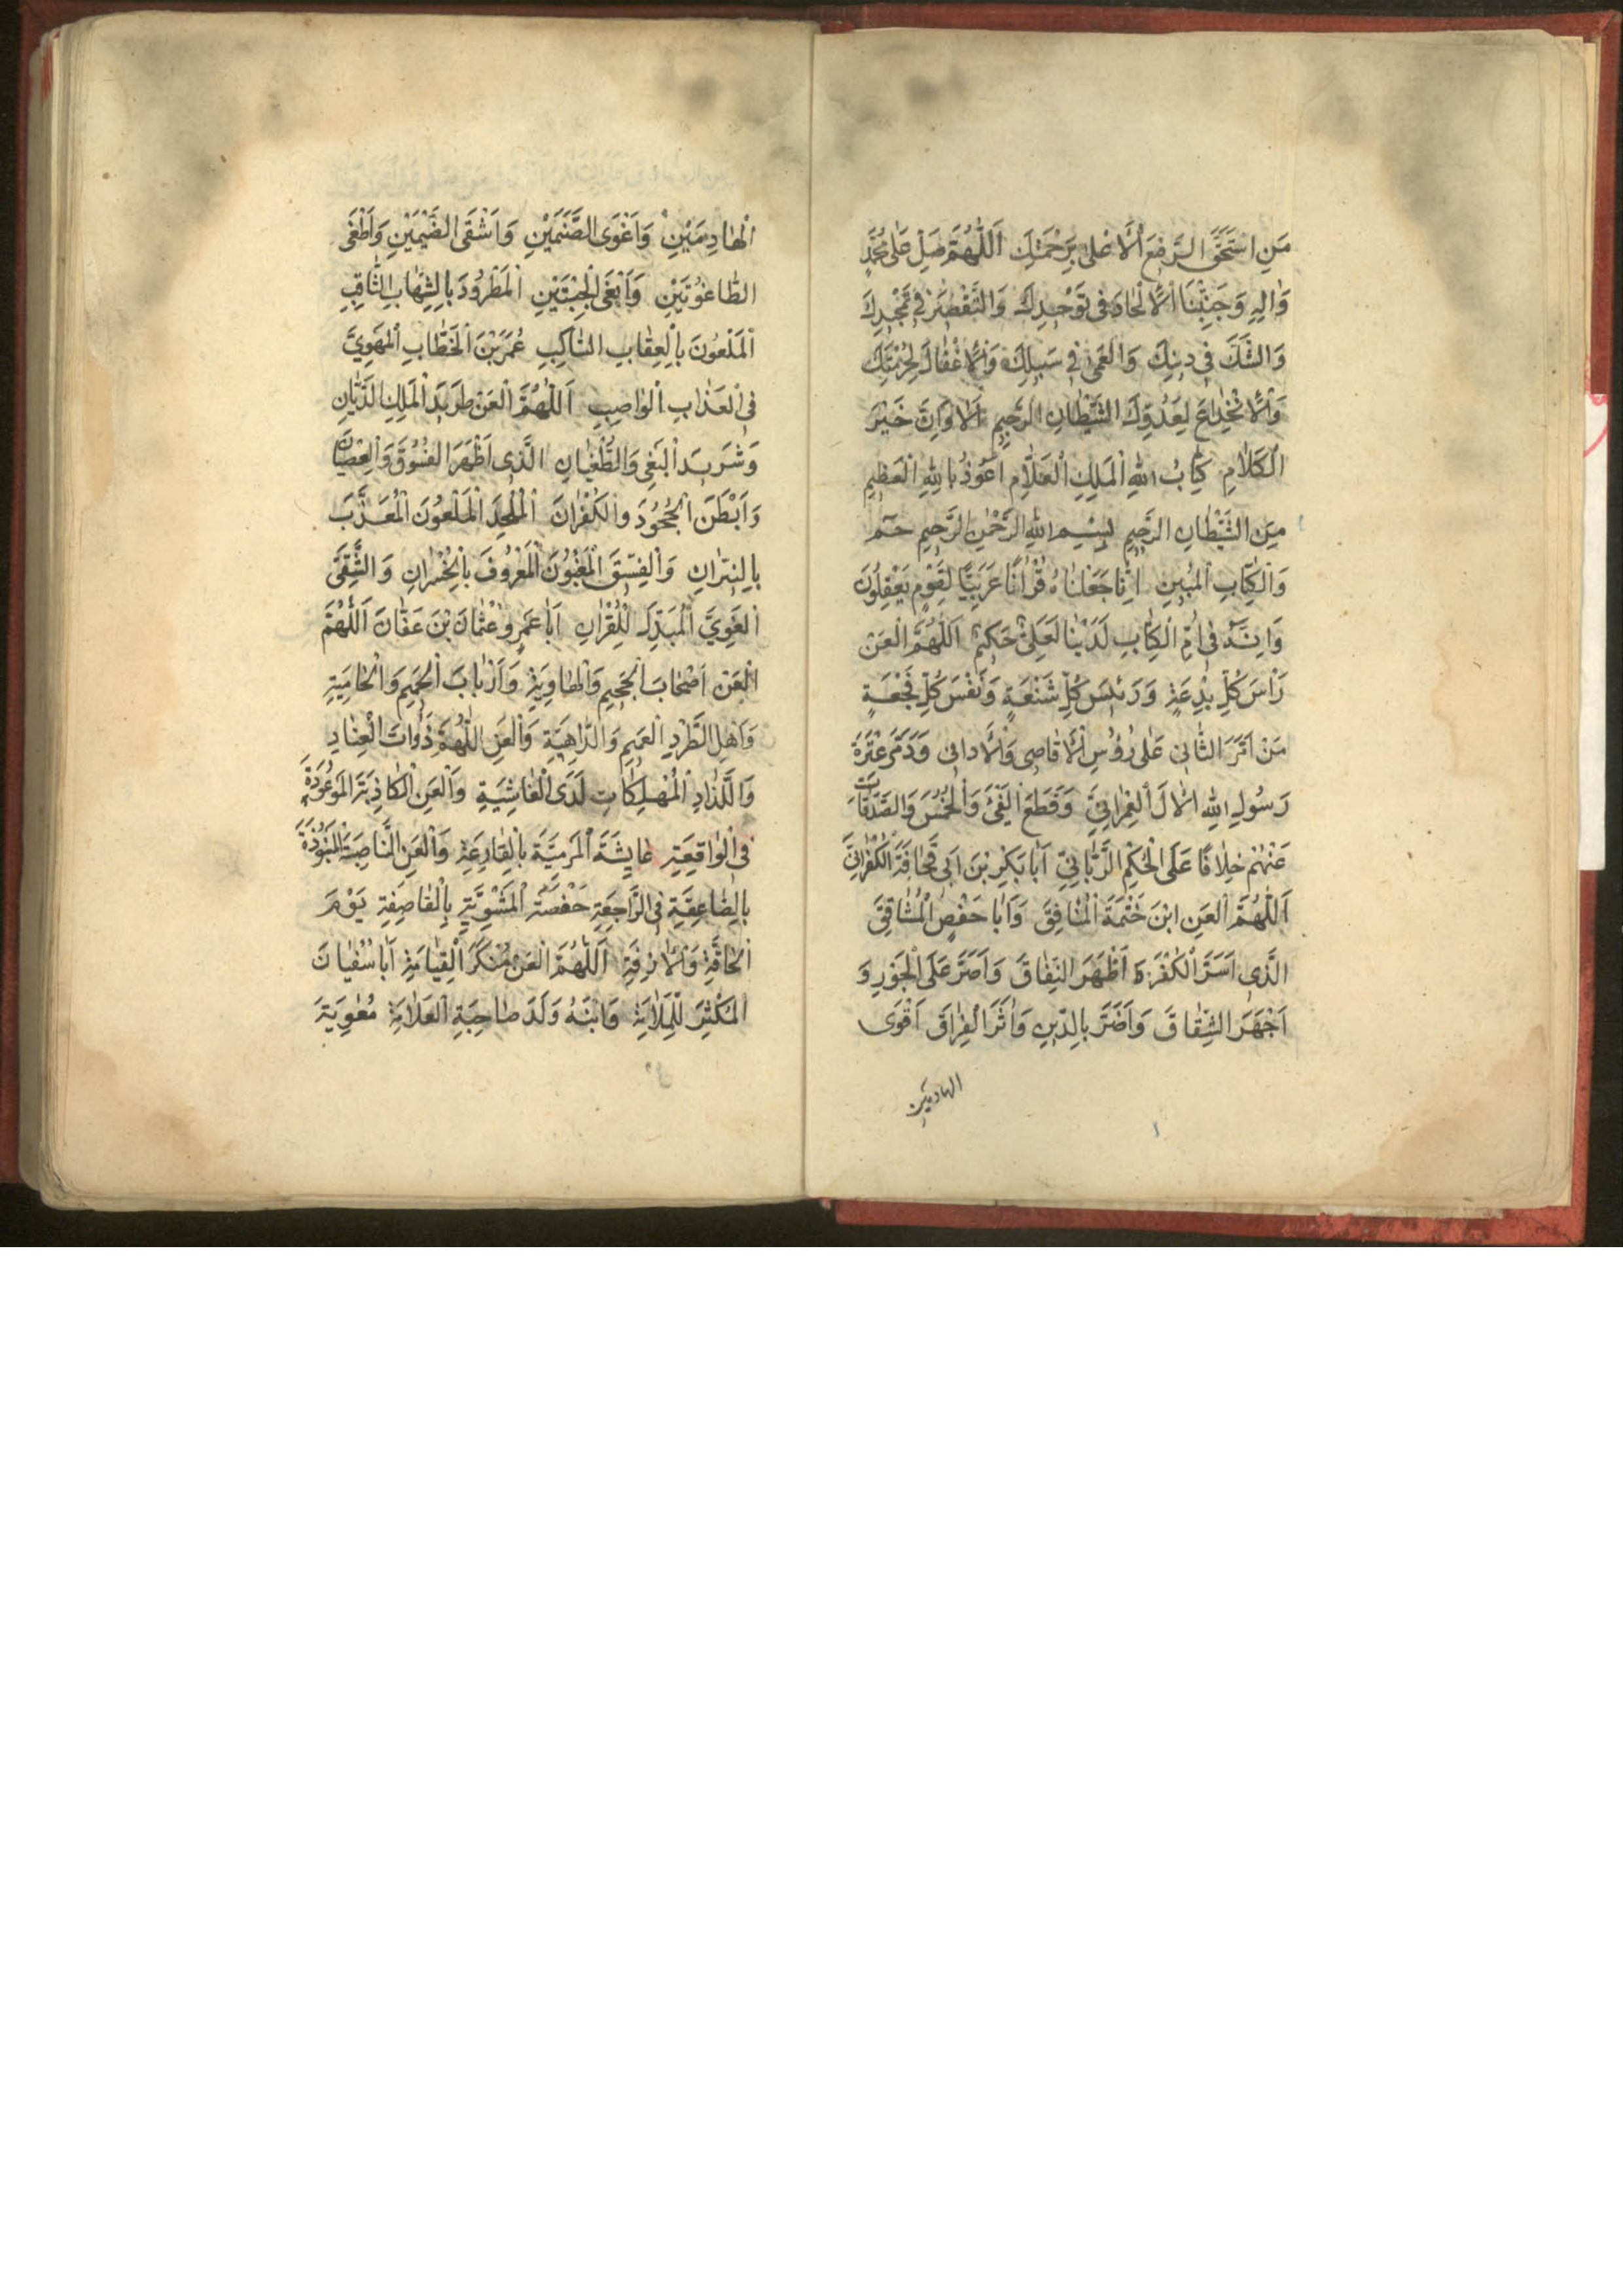 مَنِ اسْتَحَقَّ الرَّفِعَ الْأَعْلىٰ بِرَحْمَتِكَ اَللّٰهُمَّ صَلِّ عَلىٰ مُحَمَّدٍ
وَاٰلِهِ وَجَنِّبْنَا الْاِلْحَادَ فى تَوْحيدِكَ وَالتَّقْصيرَ فى تَمْجيدِكَ
وَالشَّكَّ فى دينِكَ وَالْعَمىٰ فى سَبيلِكَ وَالْاِغْفَالَ لِحُرْمَتِكَ
وَالْاِنْخِدَاعَ لِعَدُوِّكَ الشَّيْطَانِ الرَّجيمِ اَلَا وَاِنَّ خَيْرَ
الْكَلَامِ كِتَابُ اللهِ الْمَلِكِ الْعَلَّامِ اَعُوذُ بِاللهِ الْعَظيمِ
مِنَ الشَّيْطَانِ الرَّجيمِ بِسْمِ اللهِ الرَّحْمٰنِ الرَّحيمِ حٰمٓ
وَالْكِتَابِ الْمُبينِ اِنَّا جَعَلْنَاهُ قُرْاٰنًا عَرَبِيًّا لِقَوْمٍ يَعْقِلُونَ
وَاِنَّهُ فى اُمِّ الْكِتَابِ لَدَيْنَا لَعَلِىٌّ حَكيمٌ اَللّٰهُمَّ الْعَنْ
رَأْسَ كُلِّ بِدْعَةٍ وَرَئيسَ كُلِّ شَنْعَةٍ وَنَفْسَ كُلِّ فَجْعَةٍ
مَنْ اَمَّرَ الثَّانى عَلىٰ رُؤُسِ الْاَقَاصى وَالْاَدَانى وَدَمَّرَ عِتْرَةَ
رَسُولِ اللهِ الْاٰلَ الْعِمْرَانِىَّ وَقَطَعَ الْفَىْءَ وَالْخُمُسَ وَالصَّدَقَاتِ
عَنْهُمْ خِلَافًا عَلَى الْحُكْمِ الرَّبَّانِىِّ اَبَا بَكْرِ بْنَ اَبى قُحَافَةَ الْكُفْرَانِىَّ
اَللّٰهُمَّ الْعَنِ ابْنَ خَنْتَمَةَ الْمُنَافِقَ وَاَبَا حَفْصٍ الْمُشَاقِقَ
الَّذى اَسَرَّ الْكُفْرَ وَ اَظْهَرَ النِّفَاقَ وَاَصَرَّ عَلَى الْجَوْرِ وَ
اَجْهَرَ الشِّقَاقَ وَاَضَرَّ بِالدّينِ وَاٰثَرَ الْفِرَاقَ اَقْوَى
الهادمين
الْهَادِمَيْنِ وَاَغْوَى الصَّنَمَيْنِ وَاَشْقَى الضَّيْمَيْنِ وَاَطْغَى
الطَّاغُوتَيْنِ وَاَبْغَى الْجِبْتَيْنِ الْمَطْرُودَ بِالشِّهَابِ الثَّاقِبِ
الْمَلْعُونَ بِالْعِقَابِ النَّاكِبِ عُمَرَ بْنَ الْخَطَّابِ الْمَهْوِىَّ
فى الْعَذَابِ الْوَاصِبِ اَللّٰهُمَّ الْعَنْ طَريدَ الْمَلِكِ الدَّيَّانِ
وَشَريدَ الْبَغْىِ وَالطُّغْيَانِ الَّذى اَظْهَرَ الْفُسُوقَ وَالْعِصْيَانَ
وَاَبْطَنَ الْجُحُودَ وَالْكُفْرَانَ الْمُلْحِدَ الْمَلْعُونَ الْمُعَذَّبَ
بِالنّيرَانِ وَالْفِسّيقَ الْمَغْبُونَ الْمَعْرُوفَ بِالْخُسْرَانِ وَالشَّقِىَّ
الْغَوِىَّ الْمُبَدِّلَ لِلْقُرْاٰنِ اَبَا عَمْرٍو عُثْمَانَ بْنَ عَفَّانَ اَللّٰهُمَّ
الْعَنْ اَصْحَابَ الْجَحيمِ وَالْهَاوِيَةِ وَاَرْبَابَ الْحَميمِ وَالْحَامِيَةِ
وَاَهْلَ الطَّرْدِ الْعَميمِ وَالدَّاهِيَةِ وَالْعَنِ اللّٰهُمَّ ذَوَاتَ الْعِنَادِ
وَاللَّذَاذِ الْمُهْلِكَاتِ لَدَى الْغَاشِيَةِ وَالْعَنِ الْكَاذِبَةَ الْمَوْعُودَةَ
فى الْوَاقِعَةِ عَايِشَةَ الْمَرْمِيَّةَ بِالْقَارِعَةِ وَالْعَنِ النَّاصِبَةَ الْمَنْبُوذَةَ
بِالصَّاعِقَةِ فى الرَّاجِعَةِ حَفْصَةَ الْمَشْوِيَّةَ بِالْقَاصِفَةِ يَوْمَ
الْحَاقَّةِ وَالْاٰزِفَةِ اَللّٰهُمَّ الْعَنْ مُنْكِرَ الْقِيَامَةِ اَبَا سُفْيَانَ
الْمُكْثِرَ لِلْمَلَامَةِ وَابْنَهُ وَلَدَ صَاحِبَةِ الْعَلَامَةِ مُعٰوِيَةَ